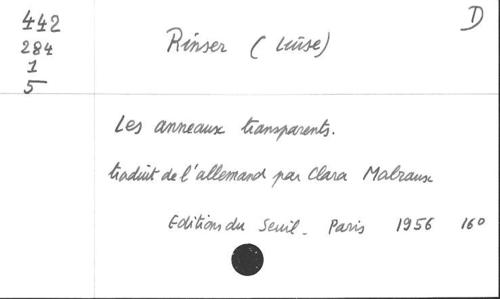 442
284
1
5
D
Rinser (Luise)
Les anneaux transparents.
traduit de l'allemand par Clara Malraux
Editions du Seuil. Paris 1956 16°